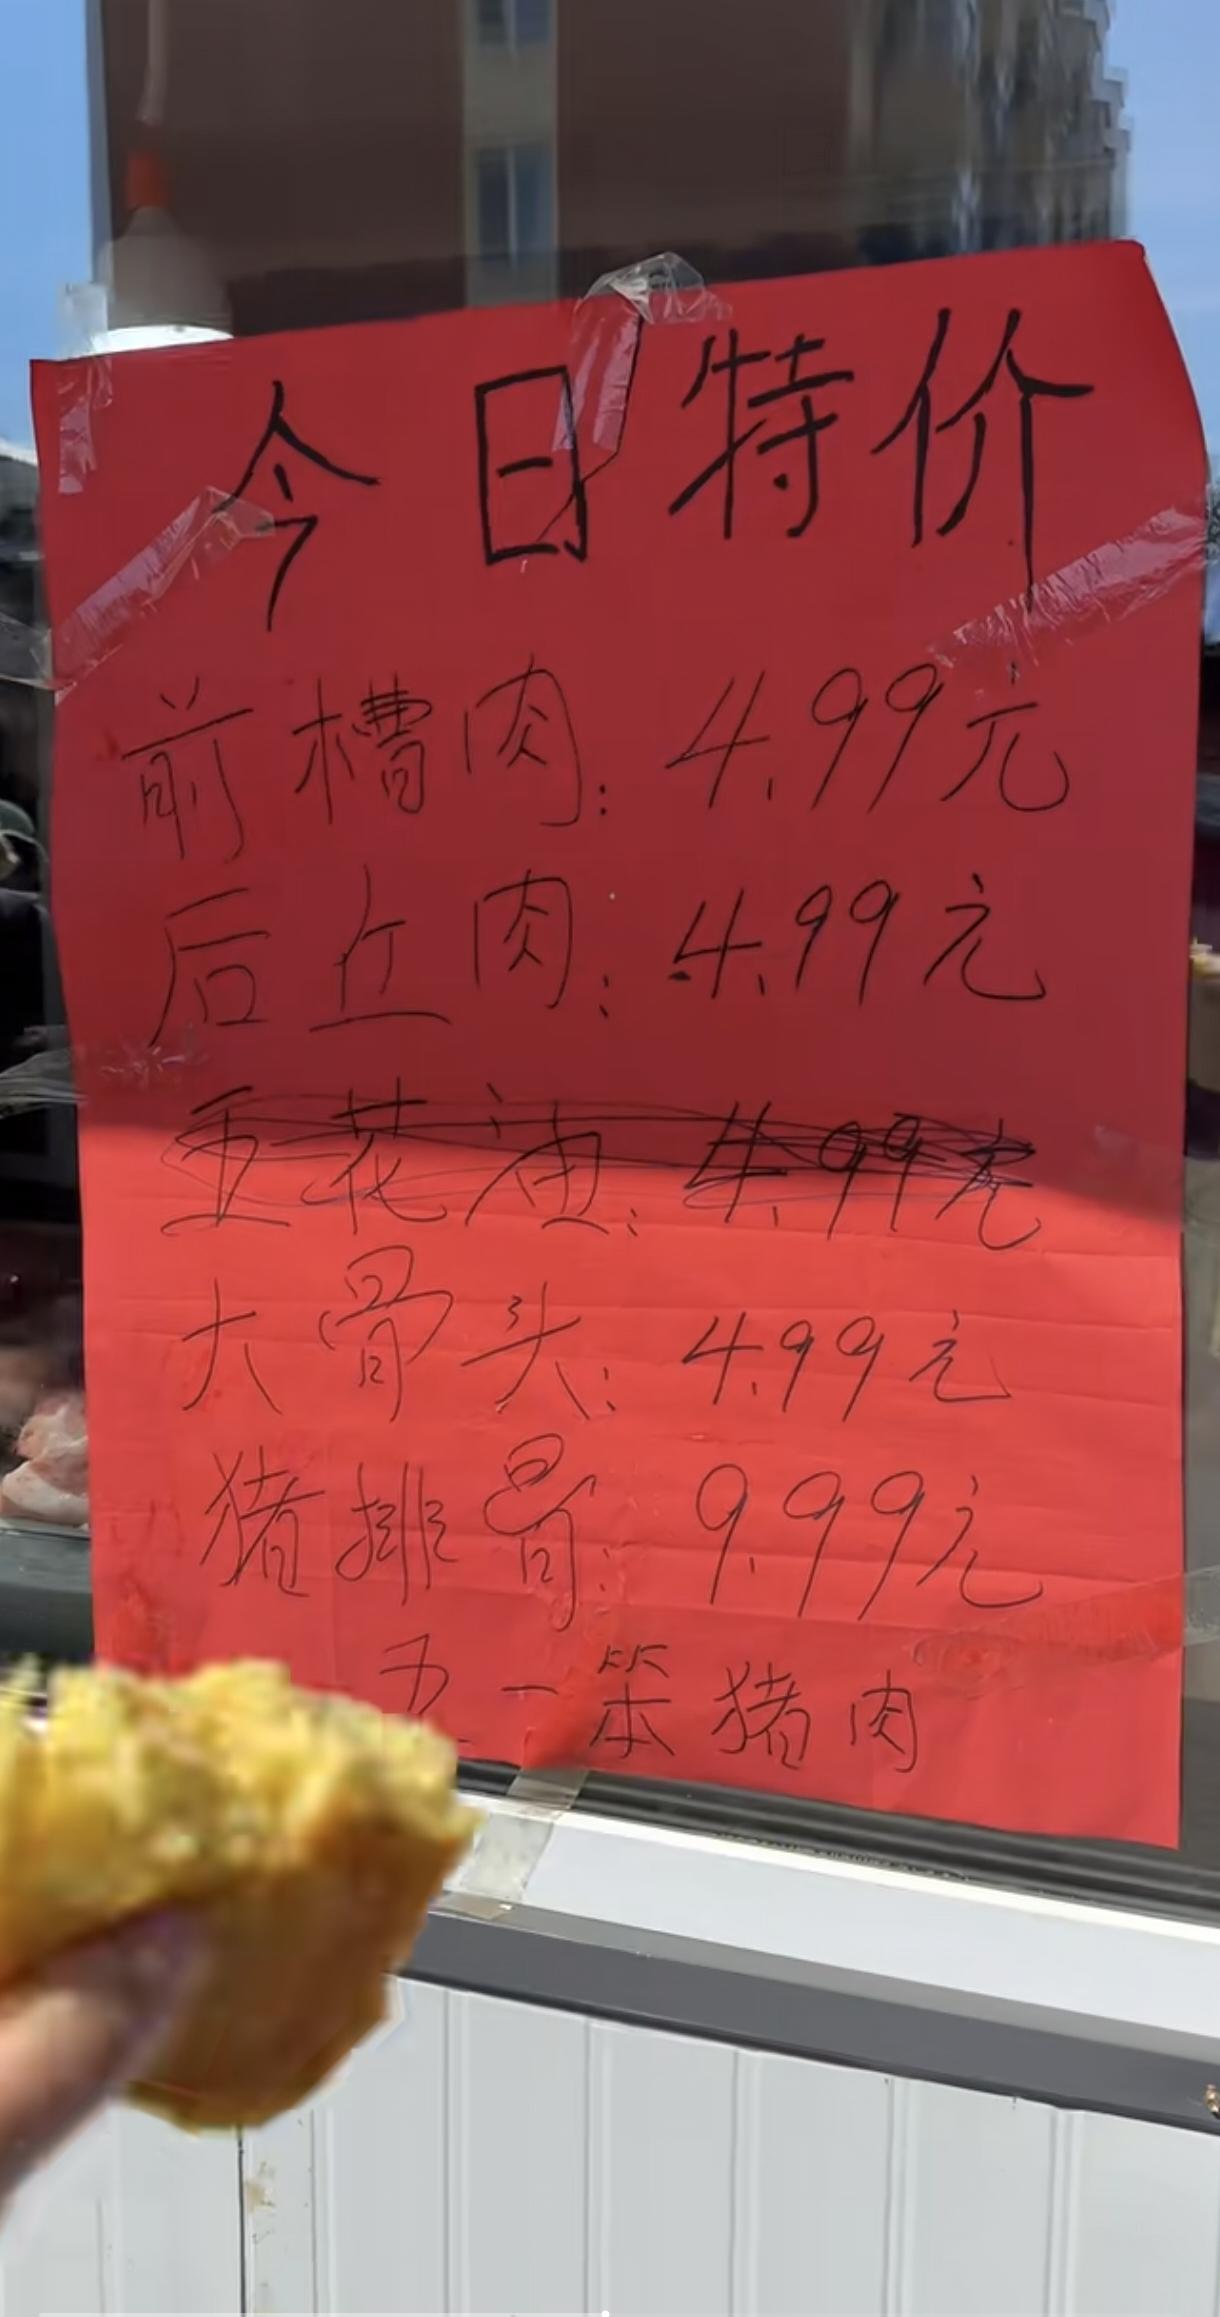 今日特价
前槽肉：4.99元
后丘肉：4.99元
五花油：4.99元
大骨头：4.99元
猪排骨：9.99元
五一笨猪肉